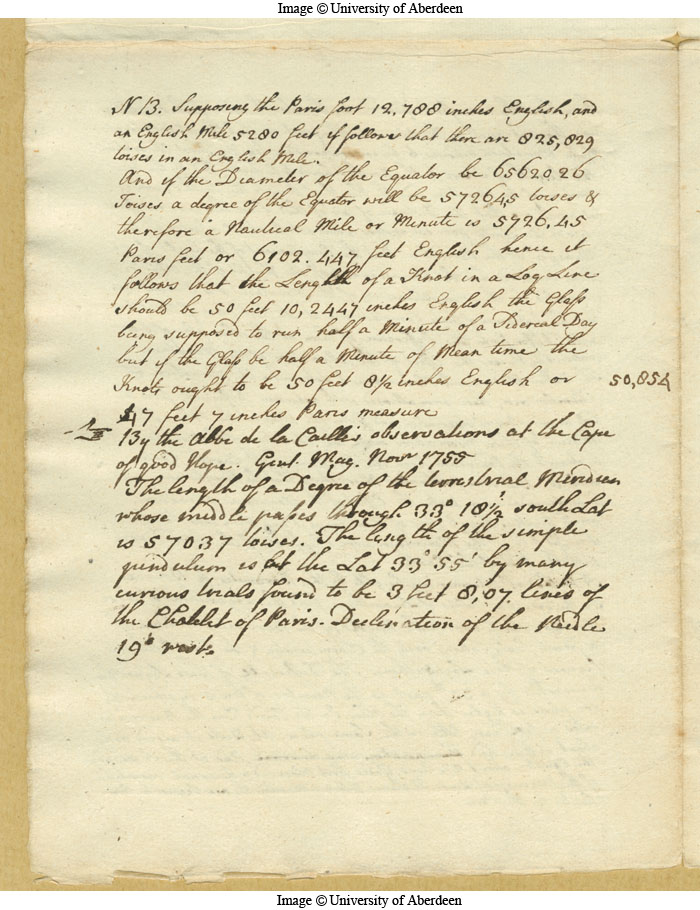 Image © University of Aberdeen
NB. Supposing the Paris foot 12,788 inches English, and
an English Mile 5280 feet it follows that there are 825,829
toises in an English Mile.
And if the Diameter of the Equator be 6562026
Toises a degree of the Equator will be 57264,5 toises &
therefore a Nautical Mile or Minute is 5726,45
Paris feet or 6102.447 feet English hence it
follows that the Length of a Knot in a Log Line
should be 50 feet 10,2447 inches English the Glass
being supposed to run half a Minute of a Sidereal Day
but if the Glass be half a Minute of Mean time the
Knots ought to be 50 feet 8½ inches English or 50,854
47 feet 7 inches Paris measure
By the Abbe de la Caille's observations at the Cape
of good Hope. Gent. Mag. Novr 1755
The length of a Degree of the terrestrial Meridien
whose middle passes through 33° 18½' south Lat
is 57037 toises. The length of the simple
pendulum is at the Lat 33° 55' by many
curious trials found to be 3 feet 8,07 lines of
the Chatelet of Paris. Declination of the Needle
19° west.
Image © University of Aberdeen